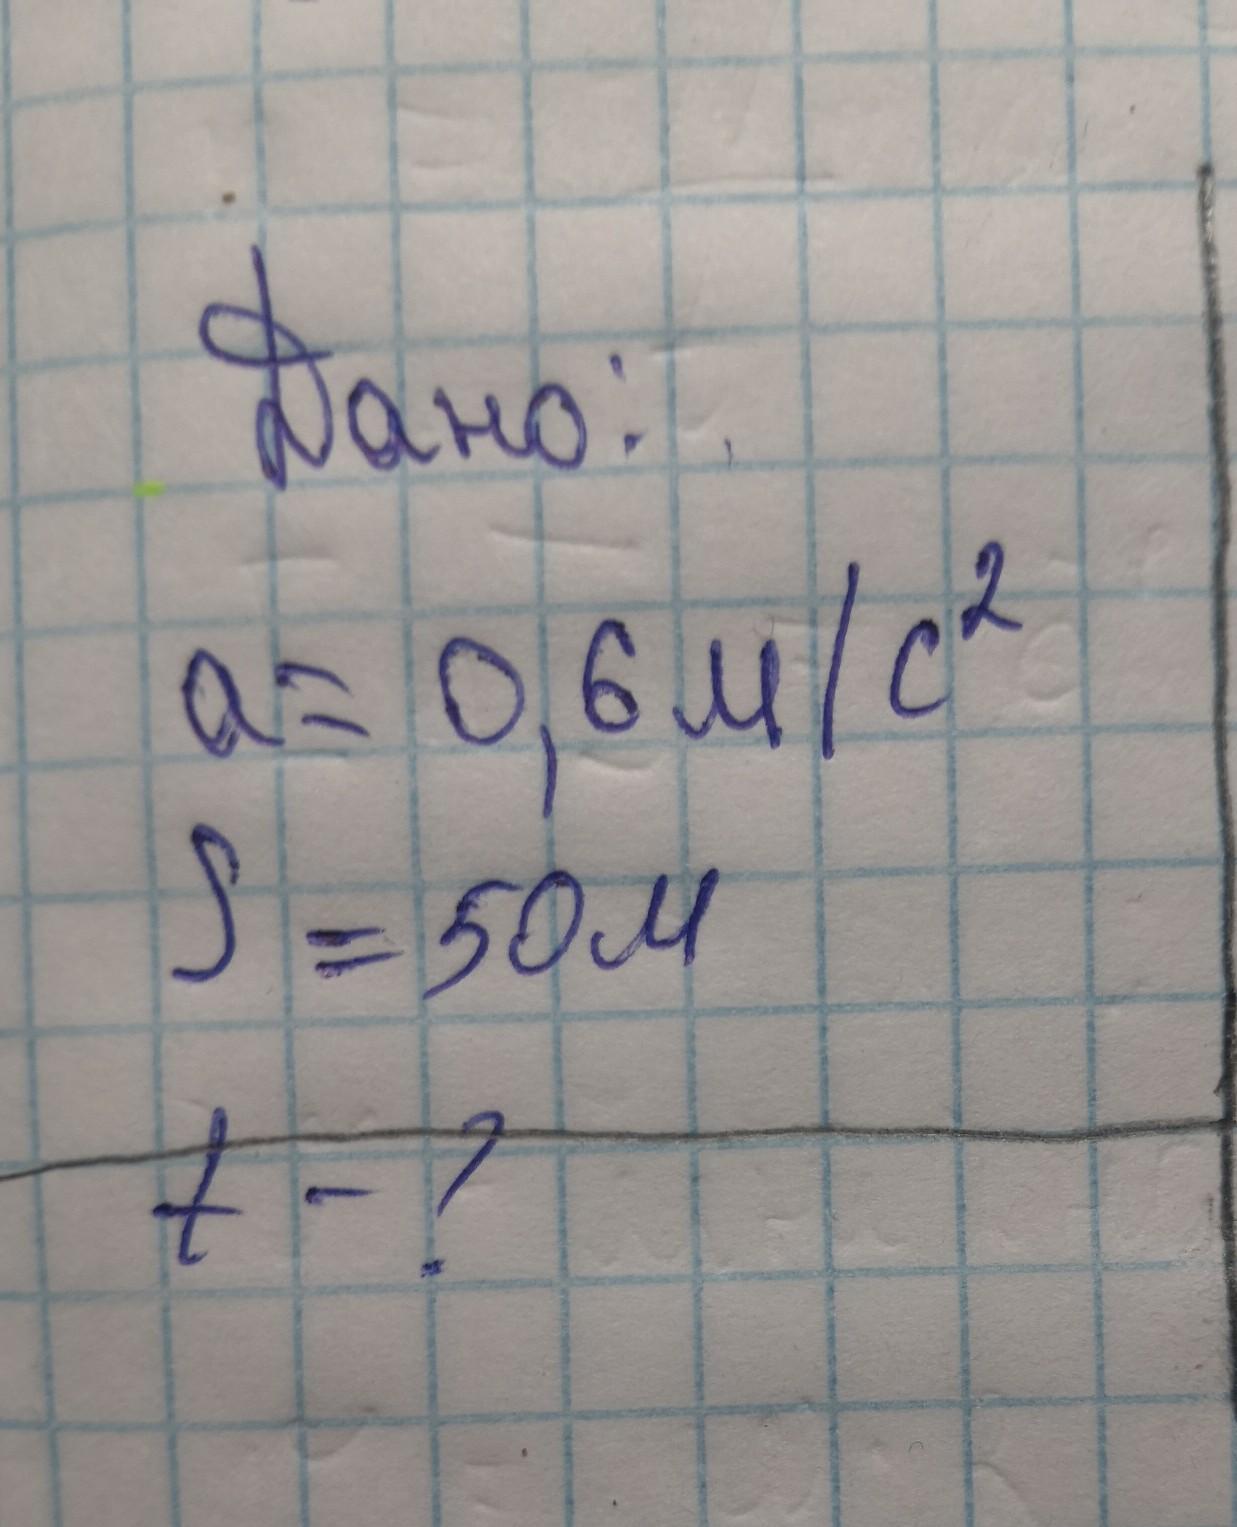 Дано:
a = 0,6 м/с²
S = 50 м
t - ?